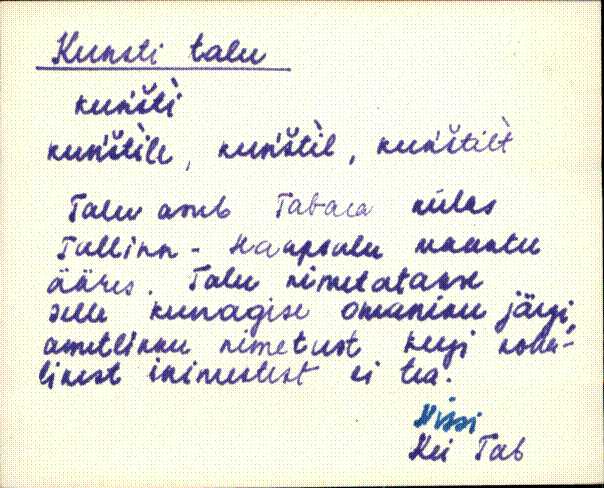 Kunsti talu
kuń̀šti
kuń̀štile, kuń̀štil, kuń̀štilt
Talu asub Tabara külas
Tallinn - Haapsalu maantee
ääres. Talu nimetatakse
selle kunagise omaniku järgi,
ametlikku nimetust keegi koha-
likest inimestest ei tea.
Nissi
Kei Tab